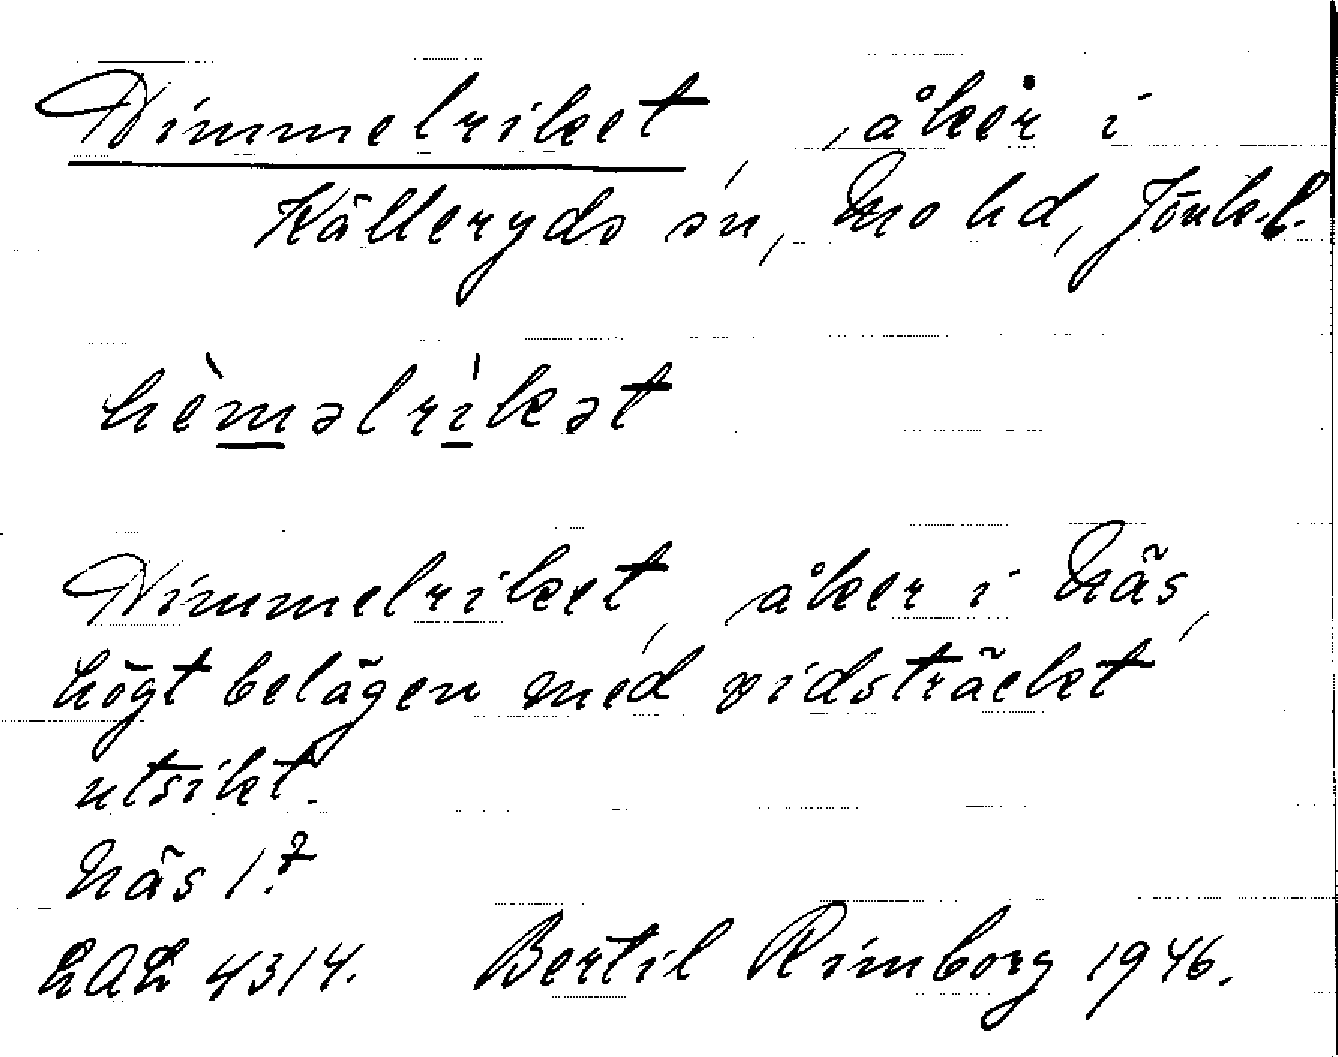 Himmelriket, åker i
Källeryds sn, Mo hd, Jönk. l.
hèməlrìkət
Himmelriket, åker i Näs,
högt belägen med vidsträckt
utsikt.
Näs 1.
LAL 4314. Bertil Rimborg 1946.